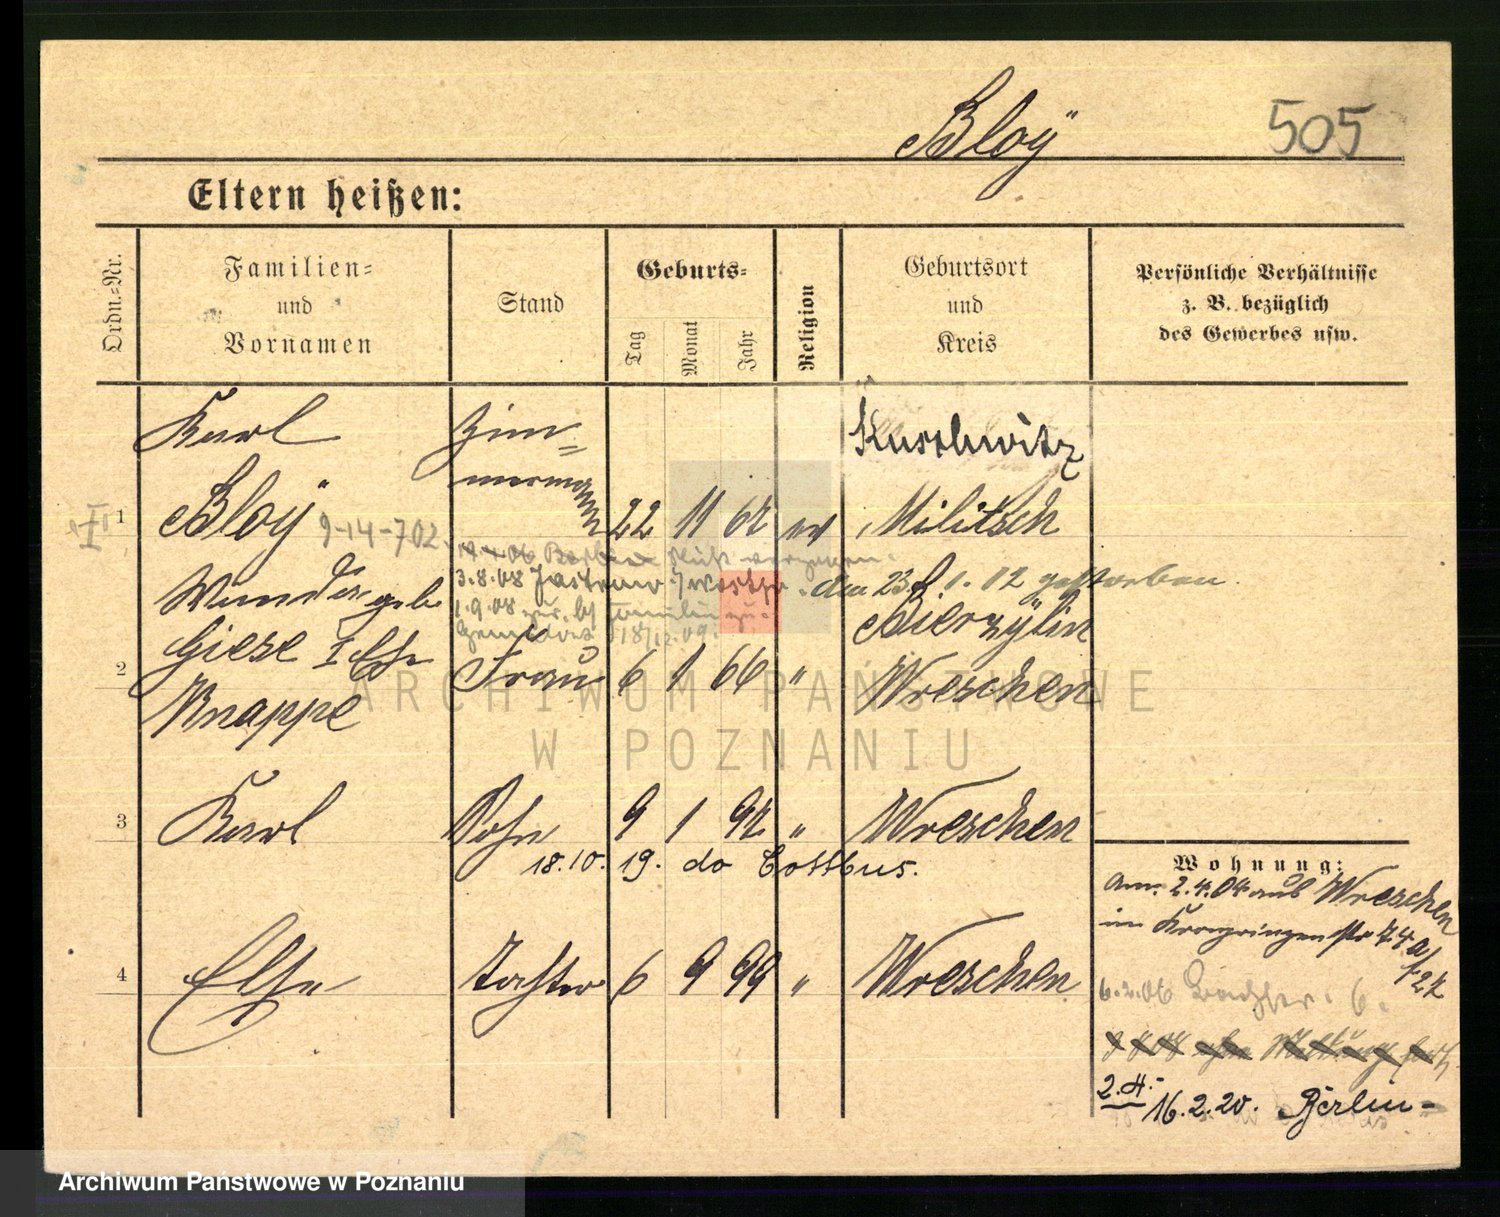 Bloÿ 505
Eltern heißen:
Ordn.-Nr.
Familien-
und
Vornamen
Stand
Geburts-
Tag
Monat
Jahr
Religion
Geburtsort
und
Kreis
Persönliche Verhältnisse
z. B. bezüglich
des Gewerbes usw.
Karl Zim=
mermann Kuschwitz
1 Bloÿ 9-14-702 22 11 62 ev Militsch
3.8.08 am 23. 1. 12 gestorben
Wanda geb. 1.9.08
18/12.09. Bierzÿlin
Giese I Ehe
2 Knappe Frau 6 1 66 " Wreschen
3 Karl Sohn 9 1 92 " Wreschen
18.10. 19. do Cottbus.
4 Else Tochter 6 9 99 " Wreschen
Wohnung:
am 2.4.04 aus Wreschen
in Kronprinzenstr 74 a/
6.2.06 6.
2.A.- 16.2.20. Berlin-
ARCHIWUM PAŃSTWOWE
W POZNANIU
Archiwum Państwowe w Poznaniu